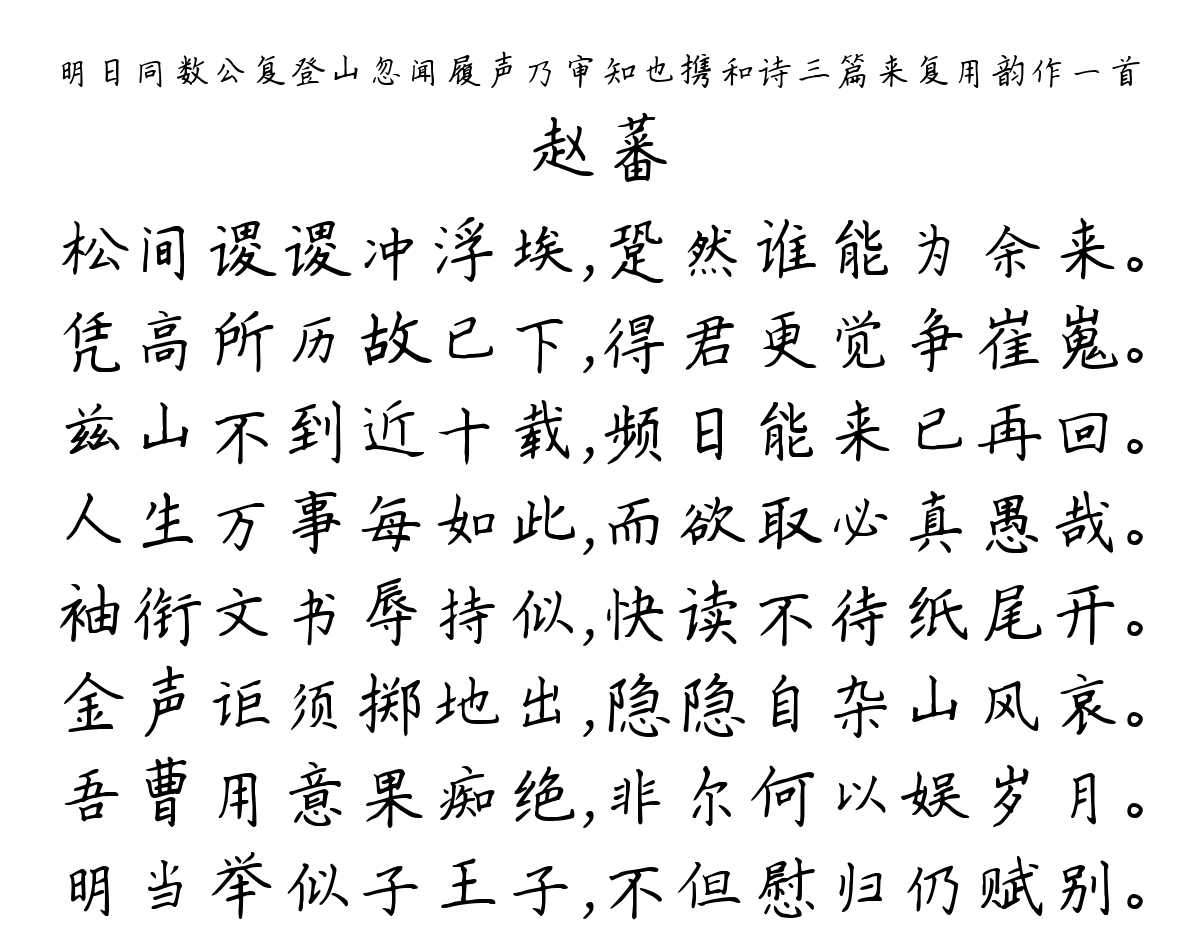 明日同数公复登山忽闻履声乃审知也携和诗三篇来复用韵作一首
赵蕃
松间谡谡冲浮埃,跫然谁能为余来。
凭高所历故已下,得君更觉争崔嵬。
兹山不到近十载,频日能来已再回。
人生万事每如此,而欲取必真愚哉。
袖衔文书辱持似,快读不待纸尾开。
金声讵须掷地出,隐隐自杂山风哀。
吾曹用意果痴绝,非尔何以娱岁月。
明当举似子王子,不但慰归仍赋别。